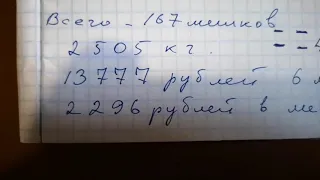 Всего - 167 мешков
2505 кг.
13777 рублей 6 м
2296 рублей в ме